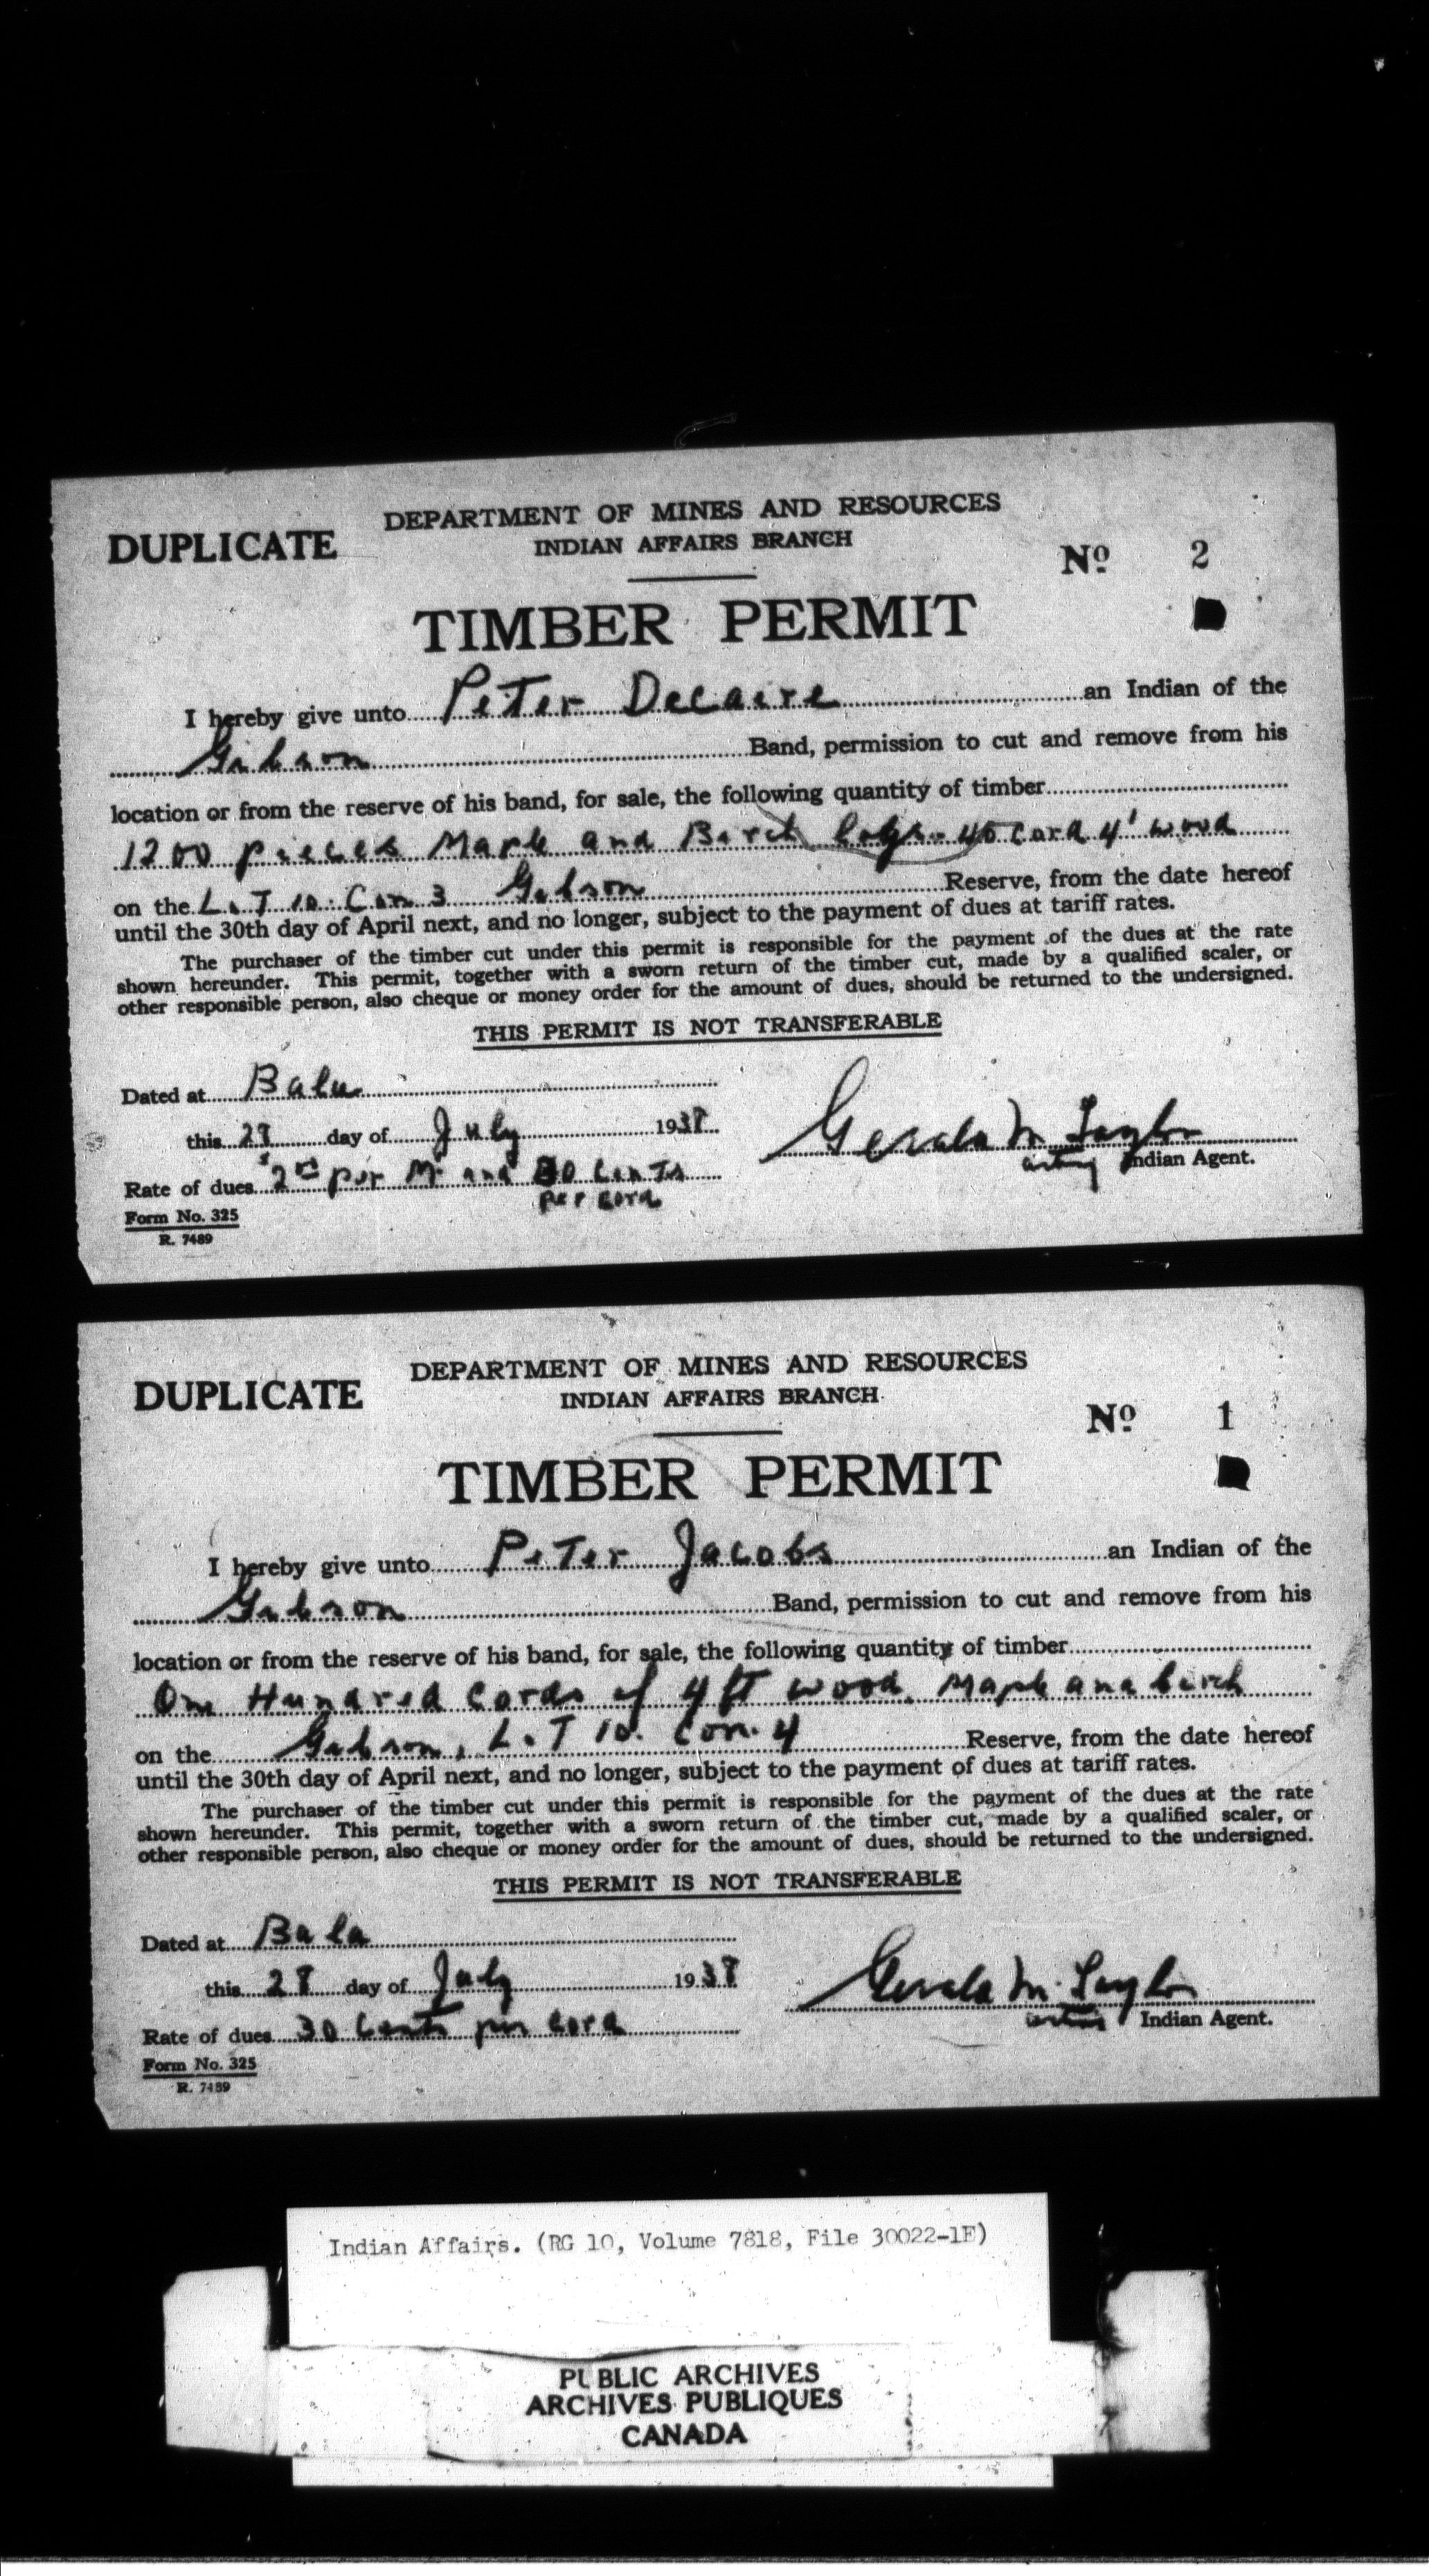 DEPARTMENT OF MINES AND RESOURCES
DUPLICATE
INDIAN AFFAIRS BRANCH
No 2
TIMBER PERMIT
I hereby give unto Peter Decaire an Indian of the
Gibson Band, permission to cut and remove from his
location or from the reserve of his band, for sale, the following quantity of timber
1200 pieces Maple and Birch logs - 40 Cord 4' wood
on the L.T 10. Con 3 Gibson Reserve, from the date hereof
until the 30th day of April next, and no longer, subject to the payment of dues at tariff rates.
The purchaser of the timber cut under this permit is responsible for the payment of the dues at the rate
shown hereunder. This permit, together with a sworn return of the timber cut, made by a qualified scaler, or
other responsible person, also cheque or money order for the amount of dues, should be returned to the undersigned.
THIS PERMIT IS NOT TRANSFERABLE
Dated at Bala
this day of July 1938
Gerald M. Taylor
acting Indian Agent.
Rate of dues per M and 30 Cents
per cord
Form No. 325
R. 7489
DEPARTMENT OF MINES AND RESOURCES
DUPLICATE
INDIAN AFFAIRS BRANCH
No 1
TIMBER PERMIT
I hereby give unto Peter Jacobs an Indian of the
Gibson Band, permission to cut and remove from his
location or from the reserve of his band, for sale, the following quantity of timber
One Hundred Cords of 4 ft wood. Maple and birch
on the Gibson, L.T 10. Con. 4 Reserve, from the date hereof
until the 30th day of April next, and no longer, subject to the payment of dues at tariff rates.
The purchaser of the timber cut under this permit is responsible for the payment of the dues at the rate
shown hereunder. This permit, together with a sworn return of the timber cut, made by a qualified scaler, or
other responsible person, also cheque or money order for the amount of dues, should be returned to the undersigned.
THIS PERMIT IS NOT TRANSFERABLE
Dated at Bala
this 28 day of July 1938
Gerald M. Taylor
acting Indian Agent.
Rate of dues 30 Cents per Cord
Form No. 325
R. 7489
Indian Affairs. (RG 10, Volume 7818, File 30022-1E)
PUBLIC ARCHIVES
ARCHIVES PUBLIQUES
CANADA